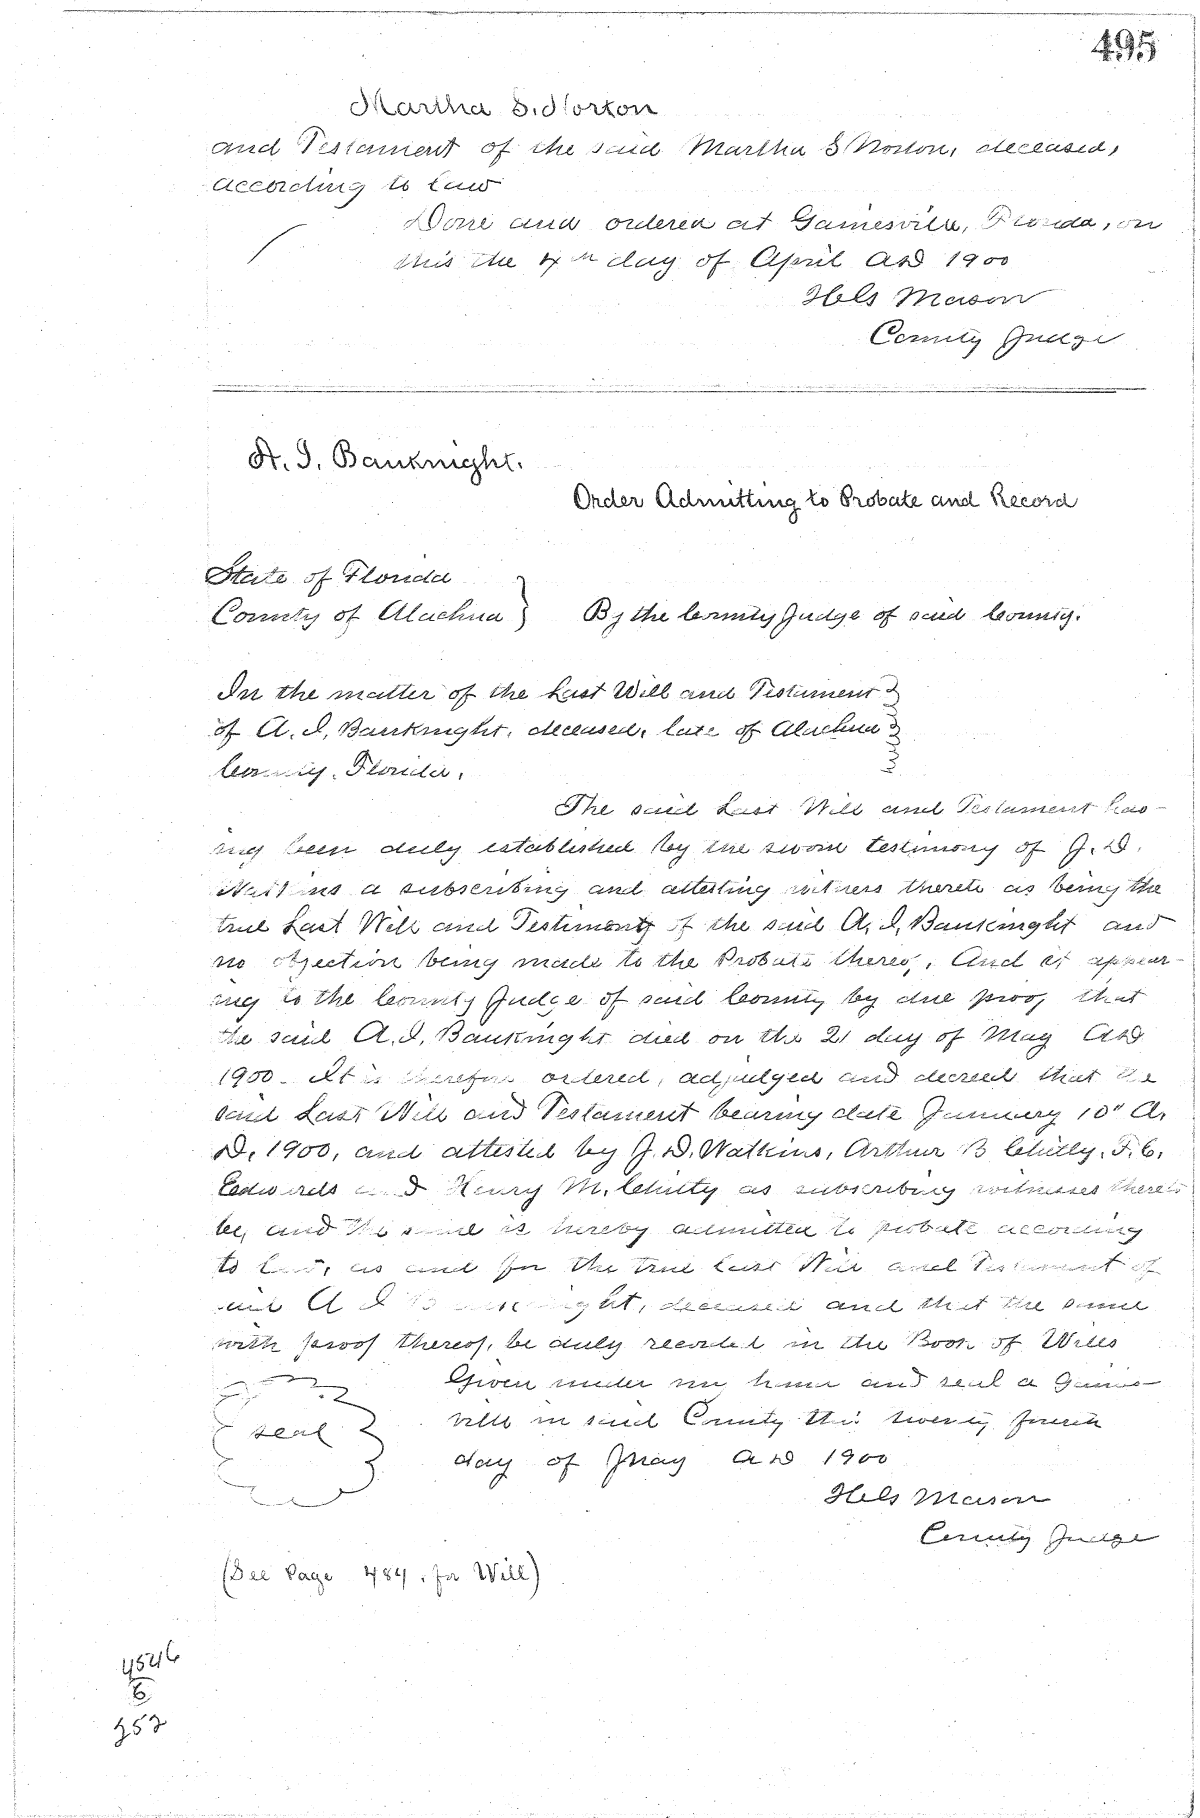 495
Martha S. Norton
and Testament of the said Martha S Norton, deceased,
according to Law
Done and ordered at Gainesville, Florida, on
this the 4th day of April AD 1900
Mason
County Judge
A. I. Bauknight.
Order Admitting to Probate and Record
State of Florida
County of Alachua } By the County Judge of said County.
In the matter of the Last Will and Testament
of A. I. Bauknight, deceased, late of Alachua
County, Florida.
The said Last Will and Testament hav-
ing been duly established by the sworn testimony of J. D.
Watkins a subscribing and attesting witness thereto as being the
true Last Will and Testimony of the said A. I. Bauknight and
no objection being made to the Probate thereof, And it appear-
ing to the County Judge of said County by due proof that
the said A. I. Bauknight died on the 21 day of May AD
1900. It is therefore ordered, adjudged and decreed that the
said Last Will and Testament bearing date January 10" A.
D. 1900, and attested by J. D. Watkins, Arthur B Chitty, F. C.
Edwards and Henry M. Chitty as subscribing witnesses thereto
be, and the same is hereby admitted to probate according
to Law, as and for the true Last Will and Testament of
said A I Bauknight, deceased and that the same
with proof thereof, be duly recorded in the Book of Wills
Given under my hand and seal a Gaines-
ville in said County this twenty fourth
seal
day of May AD 1900
Mason
County Judge
(See Page 484. for Will)
4546
6
352